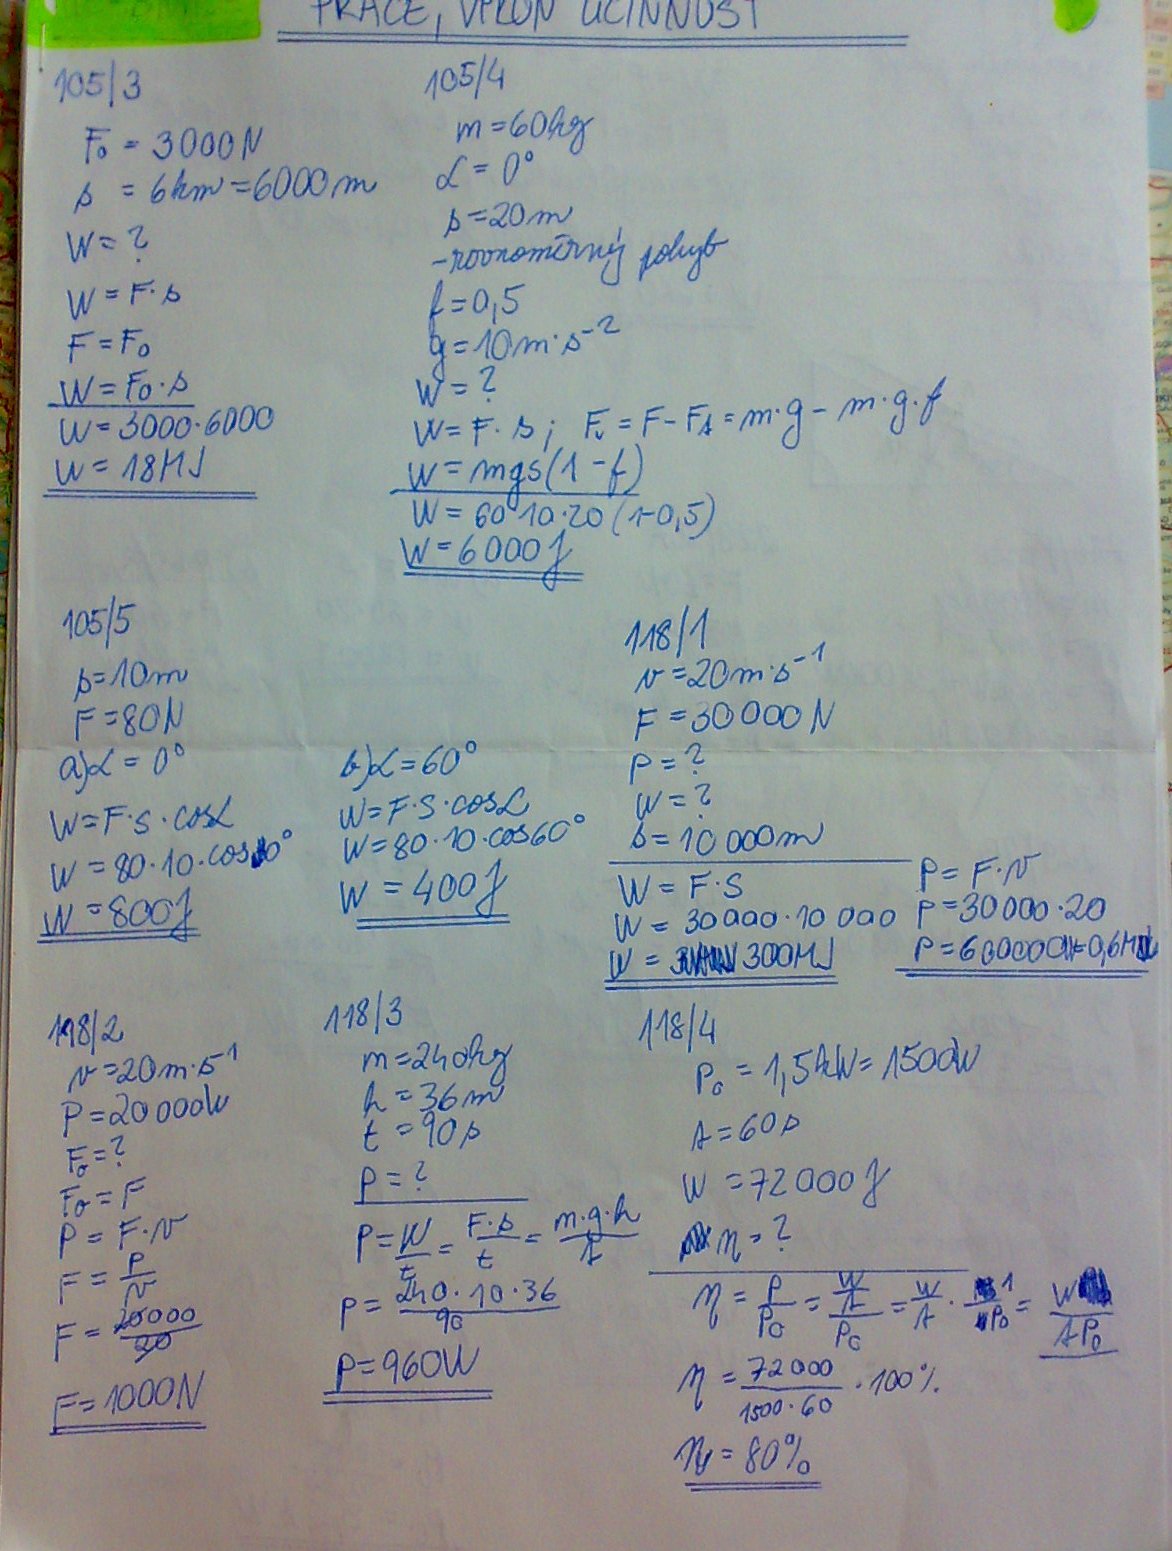 PRÁCE, VÝKON ÚČINNOST
105/3
F₀ = 3000N
s = 6km = 6000m
W = ?
W = F·s
F = F₀
W = F₀·s
W = 3000·6000
W = 18MJ
105/4
m = 60kg
α = 0°
s = 20m
-rovnoměrný pohyb
f = 0,5
g = 10m·s⁻²
W = ?
W = F·s; Fᵥ = F - Fₜ = m·g - m·g·f
W = mgs(1 - f)
W = 60·10·20 (1-0,5)
W = 6000J
105/5
s = 10m
F = 80N
a) α = 0°
W = F·s·cosα
W = 80·10·cos0°
W = 800J
b) α = 60°
W = F·s·cosα
W = 80·10·cos60°
W = 400J
118/1
v = 20m·s⁻¹
F = 30000N
P = ?
W = ?
s = 10 000m
W = F·S
W = 30000·10 000
W = 300MJ
P = F·v
P = 30000·20
P = 600000W=0,6MW
118/2
v = 20m·s⁻¹
P = 20000W
F₀ = ?
F₀ = F
P = F·v
F = P/v
F = 20000/20
F = 1000N
118/3
m = 240kg
h = 36m
t = 90s
P = ?
P = W/t = F·s/t = m·g·h/t
P = 240·10·36/90
P = 960W
118/4
P₀ = 1,5kW = 1500W
t = 60s
W = 72000J
η = ?
η = P/P₀ = W/t/P₀ = W/t · 1/P₀ = W/tP₀
η = 72000/1500·60 · 100%
η = 80%